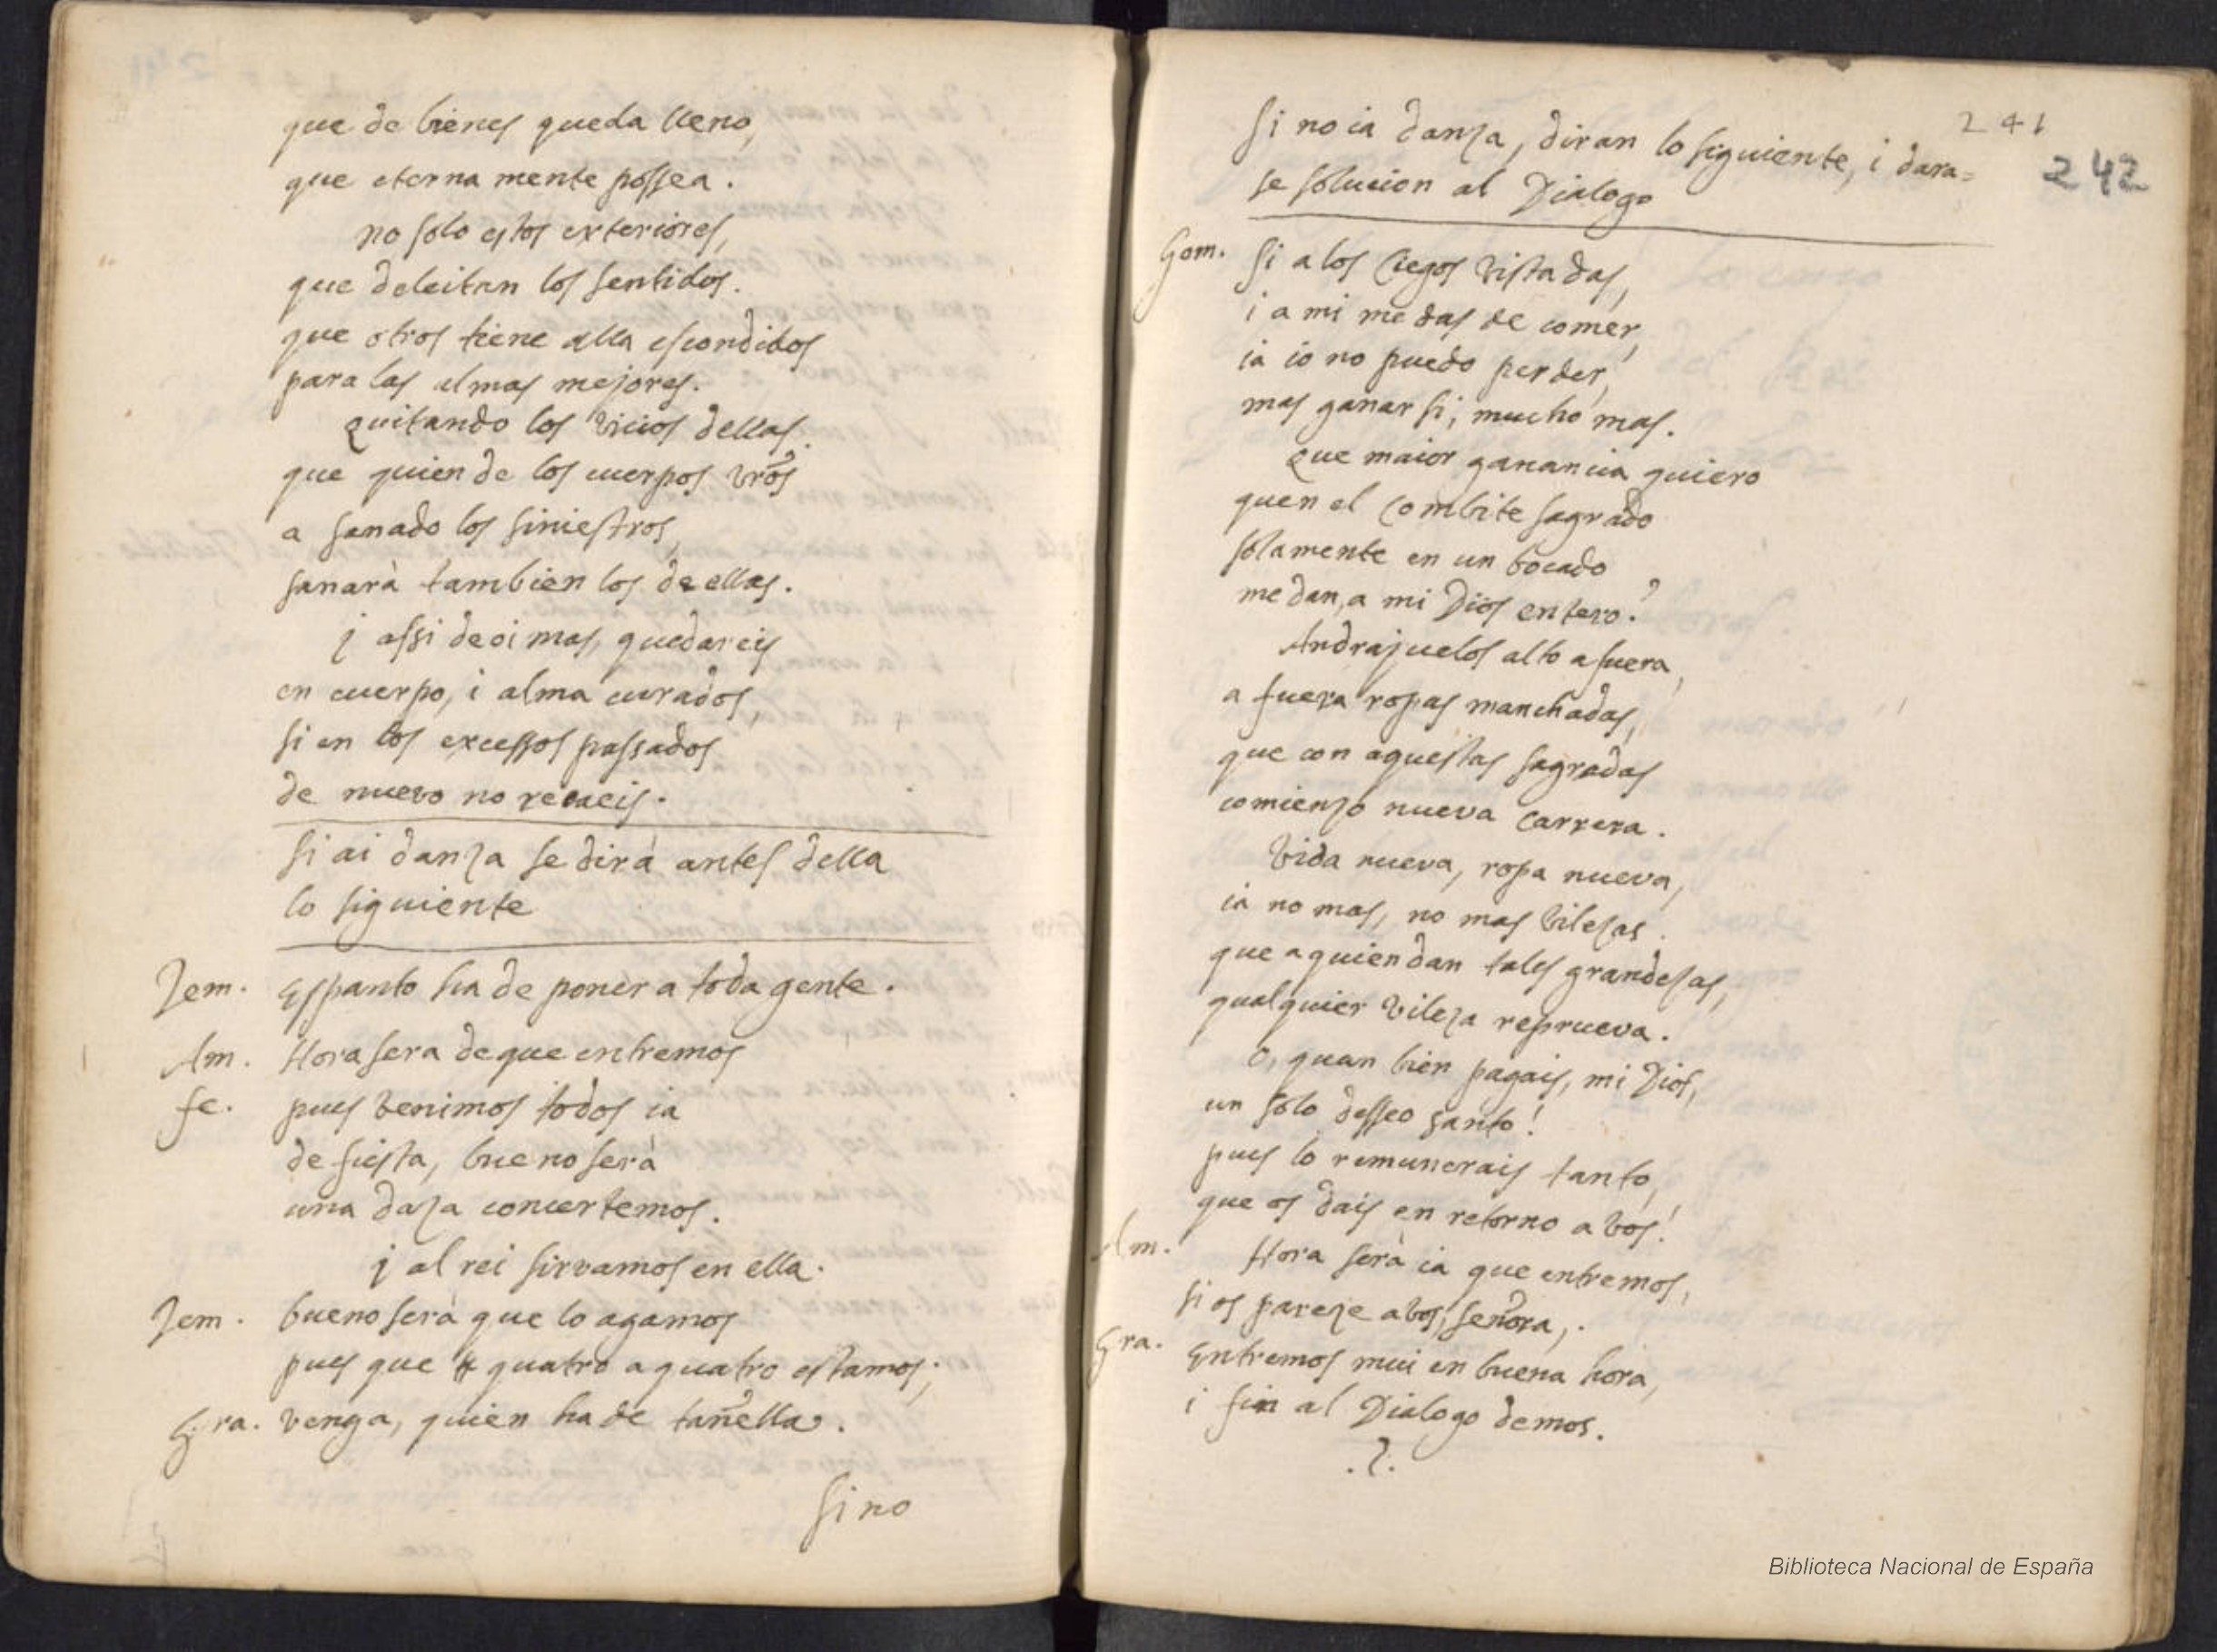 que de bienes queda lleno,
que eterna mente possea.
no solo estos exteriores,
que deleitan los sentidos.
que otros tiene alla escondidos
para las almas mejores.
Quitando los vicios dellas.
que quien de los cuerpos vr̃os
a sanado los siniestros,
sanarà tambien los de ellas.
j assi de oi mas, quedareis
en cuerpo, i alma curados,
si en los excessos passados
de nuevo no recaeis.
si ai danza se dirà antes della
lo siguiente
Zem. Espanto ha de poner a toda gente.
Am. Hora sera de que entremos
fe. pues venimos todos ia
de fiesta, bueno serà
una daza concertemos.
j al rei sirvamos en ella.
Zem. bueno serà que lo agamos
pues que quatro a quatro estamos;
Gra. venga, quien ha de tañella.
si no
241
242
si no ia danza, diran lo siguiente, i dara=
se solucion al Dialogo
Gom. si a los Ciegos vista das,
i a mi me das de comer,
ia io no puedo perder,
mas ganar si, mucho mas.
Que maior ganancia quiero
quen el Combite sagrado
solamente en un bocado
me dan, a mi Dios entero?
Andrajuelos alto a fuera,
a fuera ropas manchadas,
que con aquestas sagradas
comienzo nueva Carrera.
Vida nueva, ropa nueva,
ia no mas, no mas vilezas.
que a quien dan tales grandezas,
qualquier vileza reprueva.
O, quan bien pagais, mi Dios,
un solo desseo santo!
pues lo remunerais tanto,
que os dais en retorno a vos!
Am. Hora serà ia que entremos,
si os pareze a vos, señora,.
Gra. Entremos mui en buena hora,
i fin al Dialogo demos.
Biblioteca Nacional de España